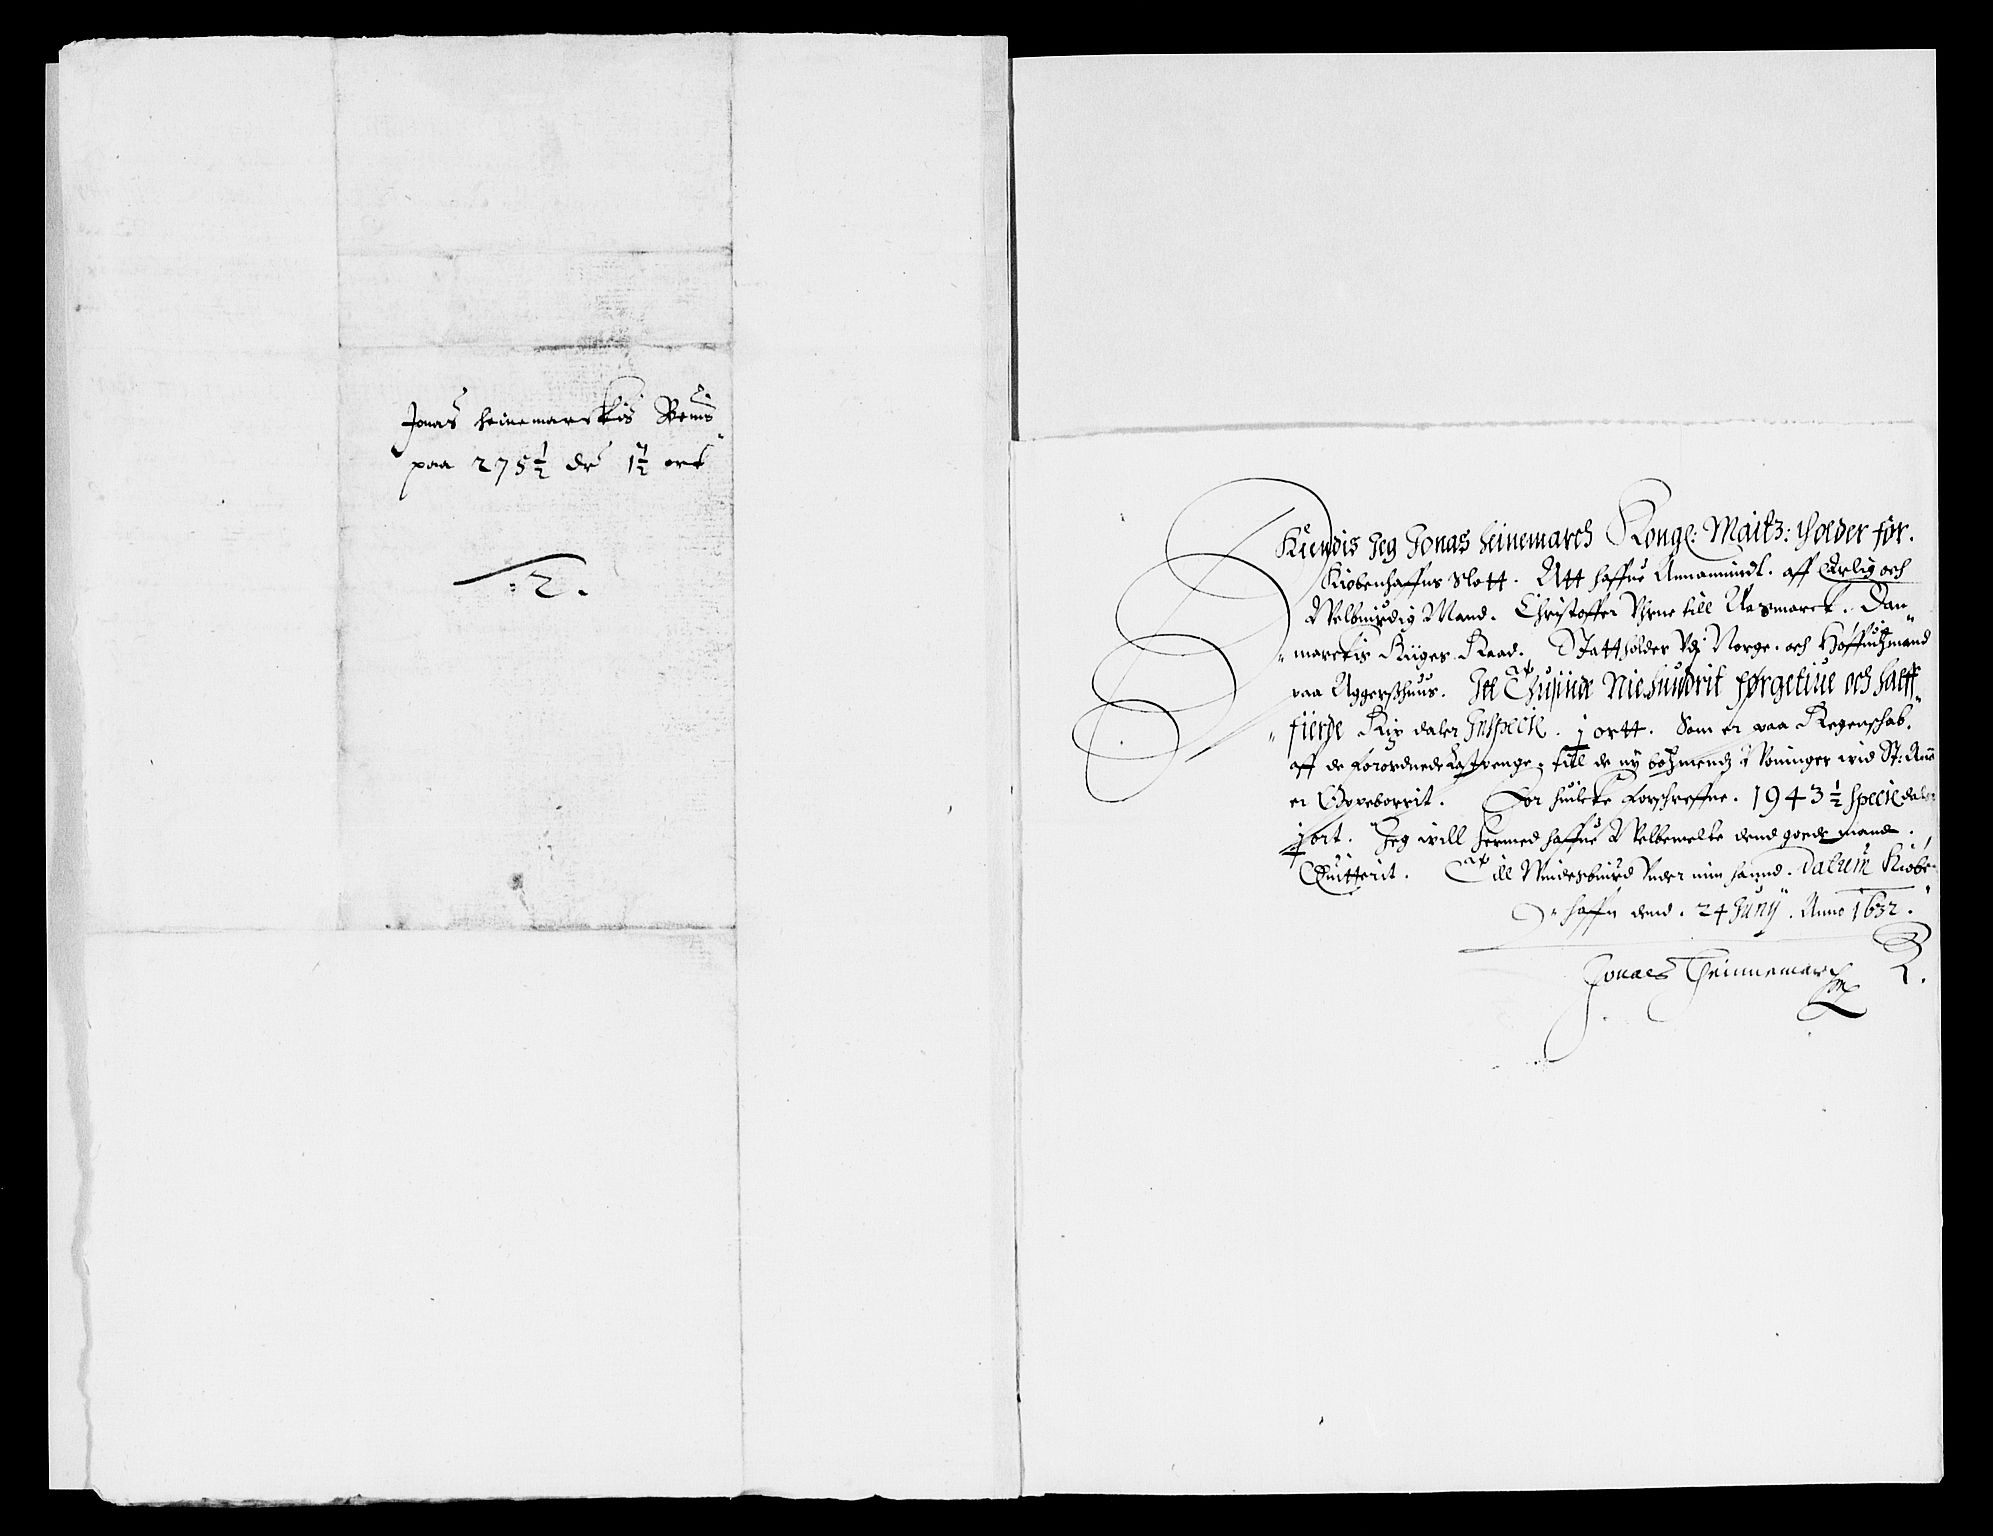 Jonas heinemarckis Beuis
paa 275½ dr 1½ ort
:2.
Kiendis Jeg Jonas heinemarch Konge: Maitz: foeder for.
Kiøbenhaffns Slott. Att haffue Annammidt. aff Erlig och
Velbiurdig Mand. Christoffer Vrne till Aasmarck. Dan-
marckis Riiges Raad. Stattholder Vdj Norge. och Høffuitzmand
paa Aggershuus. Itt Thusinde Niehundrit førgetiue och halff
fierde Rix daler In specie. j ortt. Som er paa Regenschab.
aff de Forordnede penge, till de ny botzmendz Voninger wid St: Anne
er Opeborrit. For huilcke Forschreffne. 1943½ specie daler
j ort. Jeg will hermed haffue Velbemelte dend goede mand.
Quitterit. Till Vindesbiurd Vnder min haand. Datum Kiøbe-
haffn dend. 24 Junij. Anno 1632.
Jonaes Heinnemarch